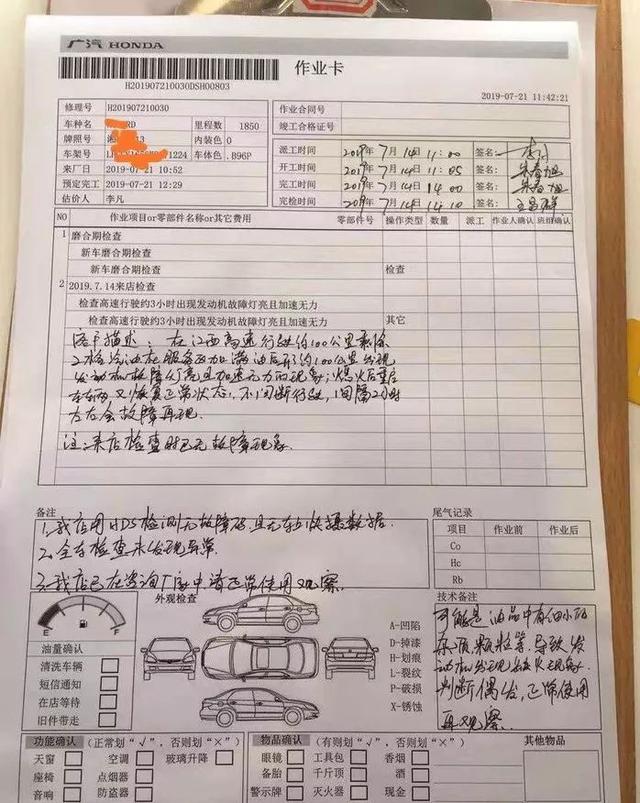 广汽 HONDA
作业卡
H201907210030DSH00803
2019-07-21 11:42:21
修理号 H201907210030
作业合同号
竣工合格证号
车种名 RD 里程数 1850
牌照号 湘 13 内装色 0
车架号 1224 车体色 .B96P
来厂日 2019-07-21 10:52
预定完工 2019-07-21 12:29
估价人 李凡
派工时间 2019年7月14 11:00 签名:
开工时间 2019年7月14 11:05 签名:
完工时间 2019年7月14 14:00 签名:
完检时间 2019年7月14 14:10 签名:
NO 作业项目or零部件名称or其它费用 零部件号 操作类型 数量 派工 作业人确认 班组确认
1 磨合期检查
新车磨合期检查
新车磨合期检查 检查
2 2019.7.14来店检查
检查高速行驶约3小时出现发动机故障灯亮且加速无力
检查高速行驶约3小时出现发动机故障灯亮且加速无力 其它
客户描述: 在江西高速行驶约100公里剩余
2格汽油在服务区加满油后行约100公里发现
发动机故障灯亮且加速无力的现象,熄火后重启
左右 又恢复正常状态,不间断行驶,间隔2小时
左右会故障再现.
注:来店检查时已无故障现象
备注
1.我店用HDS检测无故障码,且无车上快摄数据.
2.全车检查未发现异常.
3.我店已在咨询厂家申请正常使用观察
尾气记录
项目 作业前 作业后
Co
Hc
Rb
外观检查
E F
油量确认
清洗车辆
短信通知
在店等待
旧件带走
A-凹陷
D-掉漆
H-划痕
L-裂纹
P-破损
X-锈蚀
技术备注
可能是油品中有细小
杂质颗粒等.导致发
动机发现缺火现象
判断偶发,正常使用
再观察.
功能确认 (正常划“√”,否则划“×”)
天窗 空调 玻璃升降
座椅 点烟器
音响 防盗器
物品确认 (有则划“√”,否则划“×”)
眼镜 工具包 香烟
备胎 千斤顶 酒
警示牌 灭火器 现金
其他物品